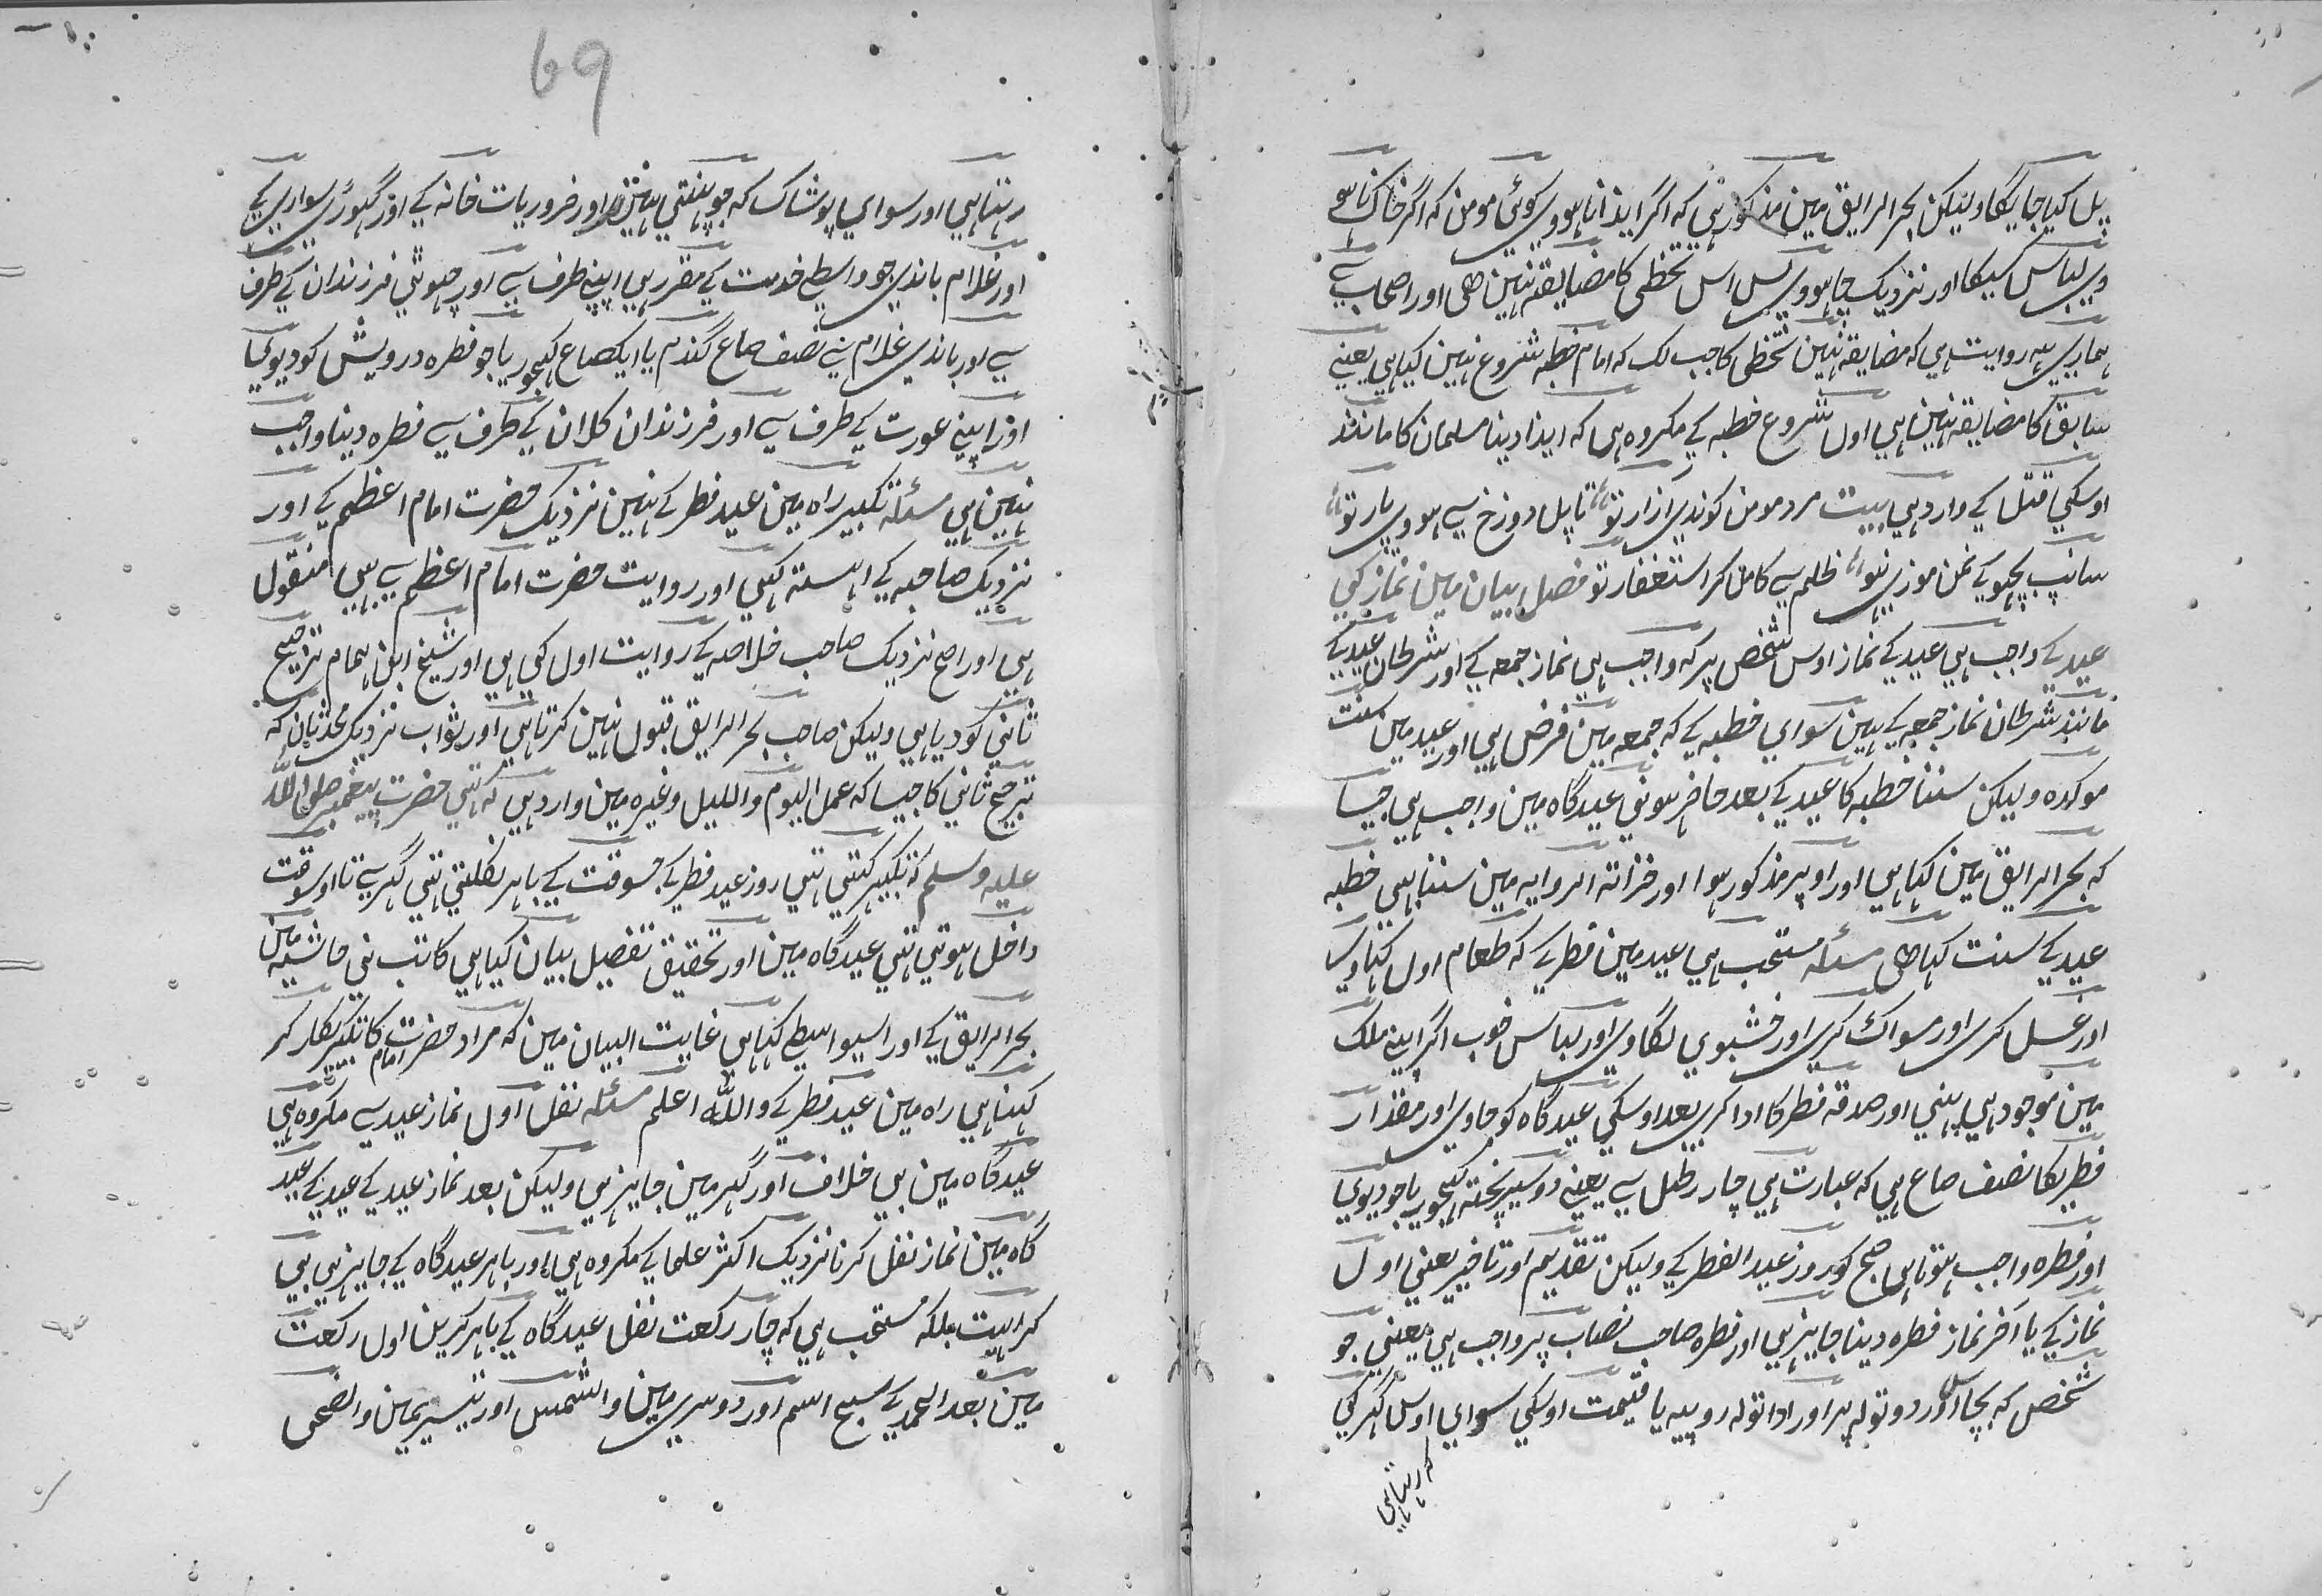 پل کیا جایگا ولیکن بحر الرایق مین مذکور ہی کہ اگر ایذا نا ہووی کوئی مومن کہ اگر خاک نا ہو
وی لباس کسیکا اور نزدیک جا ہووی پس اس تخطی کا مضایقہ نہین ھی اور اصحاب سے
ہماری یہہ روایت ہی کہ مضایقہ نہین تخطی کا جب لک کہ امام خطبہ شروع نہین کیا ہی یعنے
سابق کا مضایقہ نہین ہی اول شروع خطبہ کے مکروہ ہی کہ ایذا دینا مسلمان کا مانند
اوسکی قتل کے وارد ہی بیت مرد مومن کو ندی ازار تو تا پل دوزخ سے ہووی پار تو
سانپ بچھو کے نمن موزی نہو ظلم سے کامل کر استغفار تو فصل بیان مین نماز کی
عید کے واجب ہی عید کے نماز اوس شخص پر کہ واجب ہی نماز جمعہ کے اور شرطان عید کے
مانند شرطان نماز جمعہ کے ہین سوای خطبہ کے کہ جمعہ مین فرض ہی اور عید مین سنت
موکدہ ولیکن سننا خطبہ کا عید کے بعد حاضر ہونی عیدگاہ مین واجب ہی جیسا
کہ بحر الرایق مین کہا ہی اور اوپر مذکور ہوا اور خزانۃ الروایہ مین سننا ہی خطبہ
عید کے سنت کہا ھی مسئلہ مستحب ہی عید مین فطر کے کہ طعام اول کہاوی
اور غسل کری اور مسواک کری اور خشبوی لگاوی اور لباس خوب اگر اپنے ملک
مین موجود ہی پہنی اور صدقہ فطر کا ادا کری بعد اوسکی عیدگاہ کو جاوی اور مقدار
فطریکا نصف صاع ہی کہ عبارت ہی چار رطل سے یعنے دو سیر پختہ کہجور یا جو دیوی
اور فطرہ واجب ہوتا ہی صبح کو روز عید الفطر کے ولیکن تقدیم اور تاخیر یعنی اول
نماز کے یا آخر نماز فطرہ دینا جایز ہی اور فطرہ صاحب نصاب پر واجب ہی یعنی جو
شخص کہ بچاس اور دو تولہ پر اور ادا تولہ روپیہ یا قیمت اوسکی سوای اوس گہر کی
کہ رہتا ہی
69
رہتا ہی اور سوای پوشاک کہ جو پہنتی ہین اور ضروریات خانہ کے اور گہوڑی سواری کے
اور غلام باندی جو واسطے خدمت کے مقرر ہی اپنے طرف سے اور چہوٹی فرزندان کے طرف
سے اور باندی غلام نے نصف صاع گندم یا ایکصاع کہجور یا جو فطرہ درویش کو دیویگا
اور اپنے عورت کے طرف سے اور فرزندان کلان کے طرف سے فطرہ دینا واجب
نہین ہی مسئلہ تکبیر راہ مین عید فطر کے نہین نزدیک حضرت امام اعظم کے اور
نزدیک صاحبہ کے اہستہ کہی اور روایت حضرت امام اعظم سے یہی منقول
ہی اور اصح نزدیک صاحب خلاصہ کے روایت اول کی ہی اور شیخ ابن ہمام ترجیح
ثانی کو دیا ہی ولیکن صاحب بحر الرایق قبول نہین کرتا ہی اور صواب نزدیک محدثان کہ
ترجیح ثانی کا جیسا کہ عمل الیوم واللیل وغیرہ مین وارد ہی کہ تہی حضرت پیغمبر صلی اللہ
علیہ وسلم کہ تکبیر کہتی تہی روز عید فطر کے جسوقت کے باہر نکلتی تہی گہر سے تا اوسوقت
داخل ہوتی تہی عیدگاہ مین اور تحقیق تفصیل بیان کیا ہی کاتب نی حاشیہ مین
بحر الرایق کے اور اسیواسطے کہا ہی غایت البیان مین کہ مراد حضرت امام کا تکبیر پکار کر
کہنا ہی راہ مین عید فطر کے واللہ اعلم مسئلہ نفل اول نماز عید سے مکروہ ہی
عیدگاہ مین بی خلاف اور گہر مین جایز ہی ولیکن بعد نماز عید کے عید کے عید
گاہ مین نماز نفل کرنا نزدیک اکثر علما کے مکروہ ہی اور باہر عیدگاہ کے جایز ہی بی
کراہیت بلکہ مستحب ہی کہ چار رکعت نفل عیدگاہ کے باہر کرین اول رکعت
مین بعد الحمد کے سبح اسم اور دوسری مین والشمس اور تیسریمین والضحی